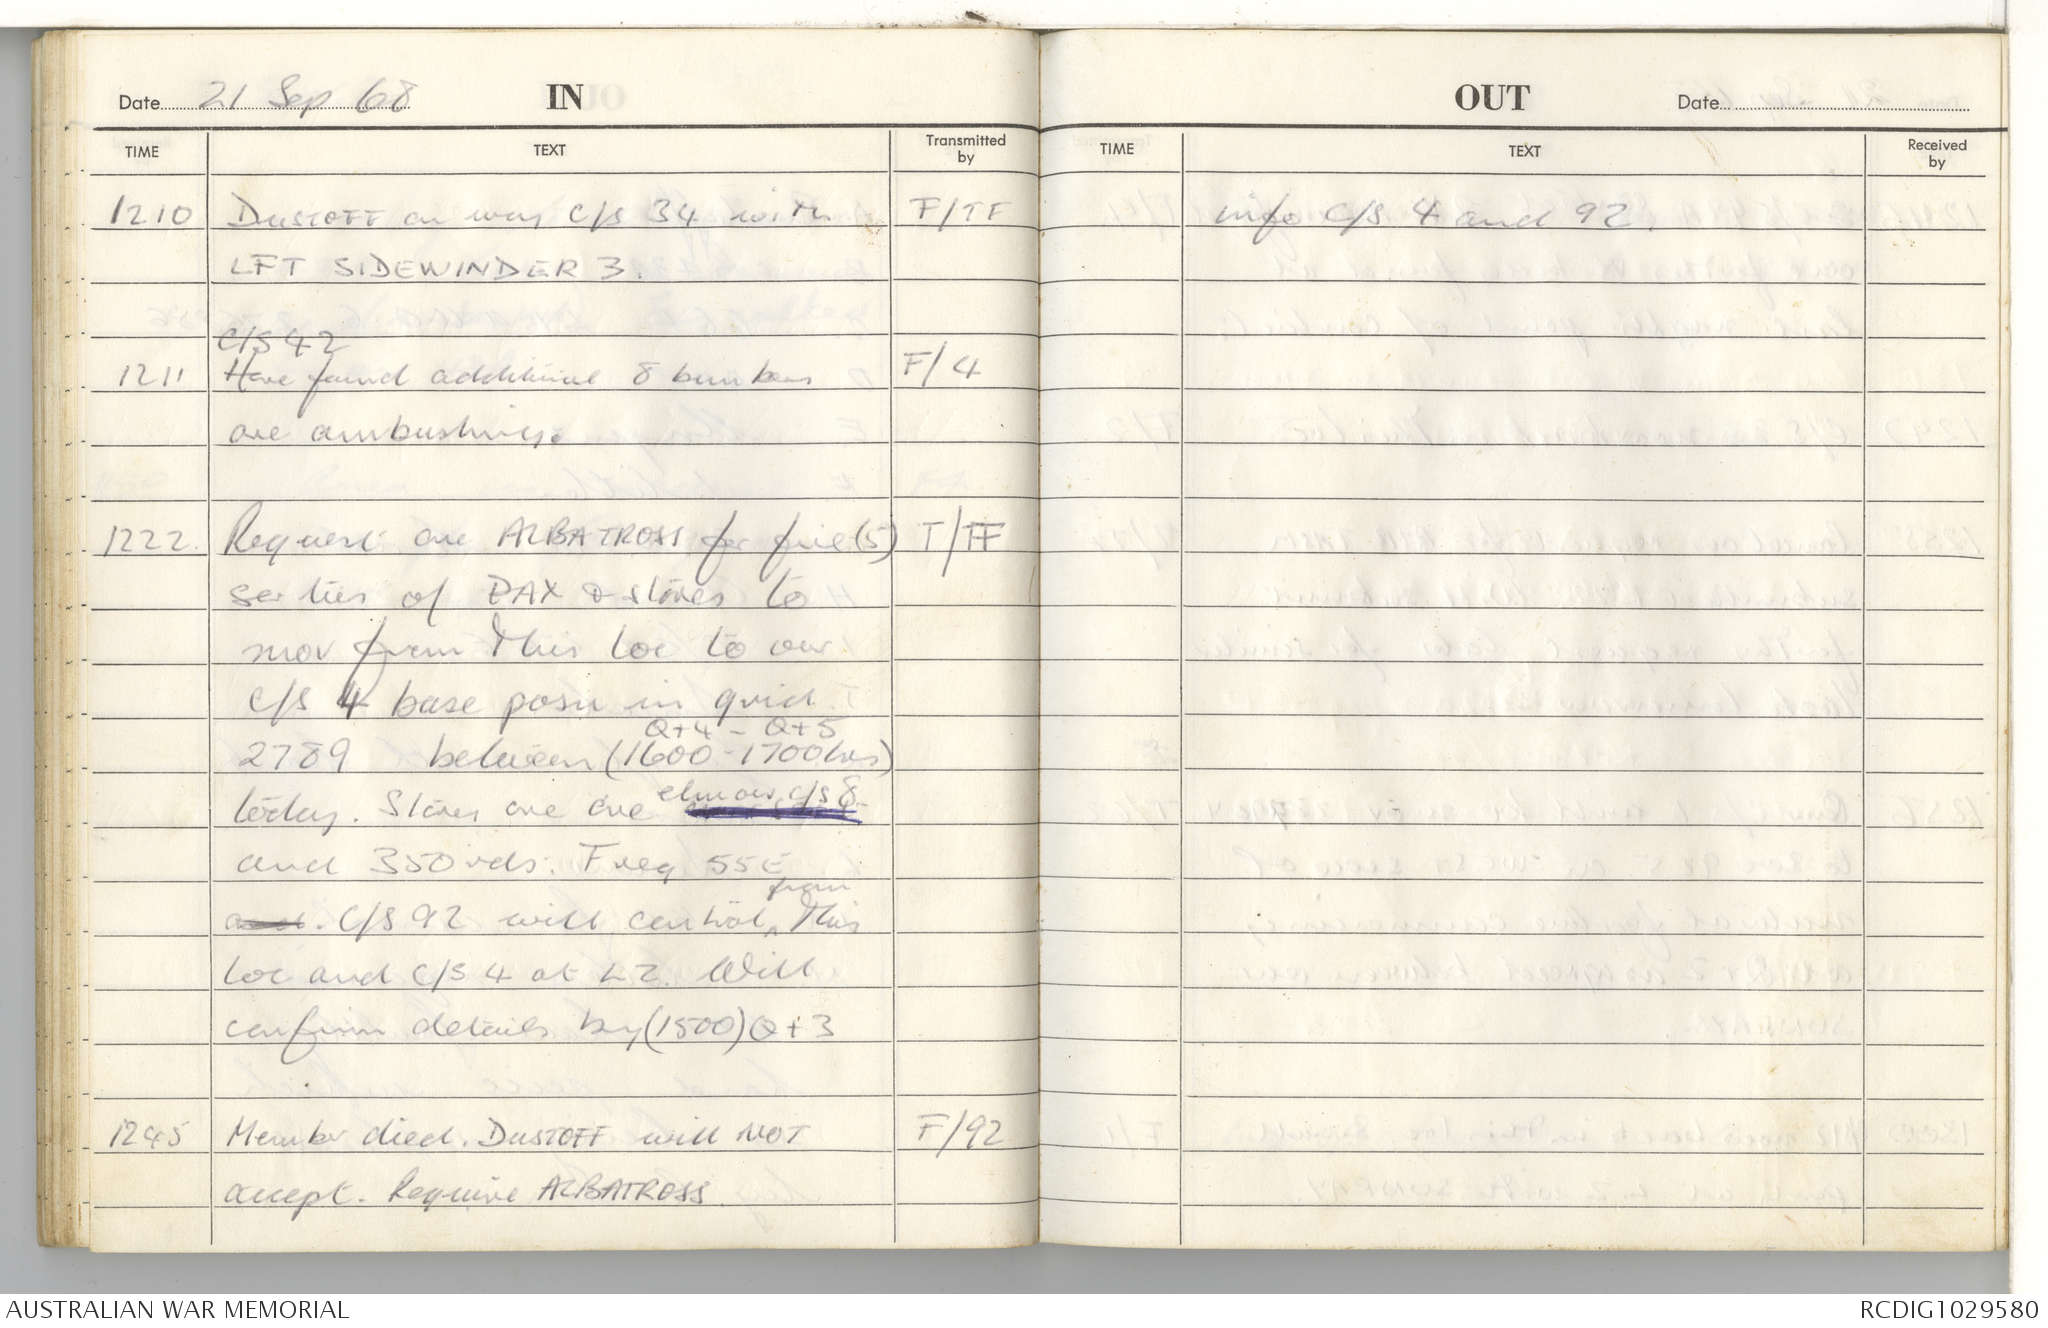 Date 21 Sep 68 IN
TIME TEXT Transmitted by
1210 DUSTOFF on way C/S 34 with F/TF
LFT SIDEWINDER 3.
C/S 42
1211 Have found additional 8 bunkers F/4
are ambushing.
1222. Request one ALBATROSS for five (5) T/TF
sorties of PAX & stores to
mov from this loc to our
C/S 4 base posn in grid
Q+4 - Q+5
2789 between (1600-1700hrs)
today. Stores are one
C/S 8
and 350 rds. Freq 55
from
C/S 92 will control ^ this
loc and C/S 4 at LZ. Will
confirm details by (1500) Q+3
1245 Member died. DUSTOFF will NOT F/92
accept. Require ALBATROSS
OUT Date
TIME TEXT Received by
info C/S 4 and 92.
AUSTRALIAN WAR MEMORIAL
RCDIG1029580